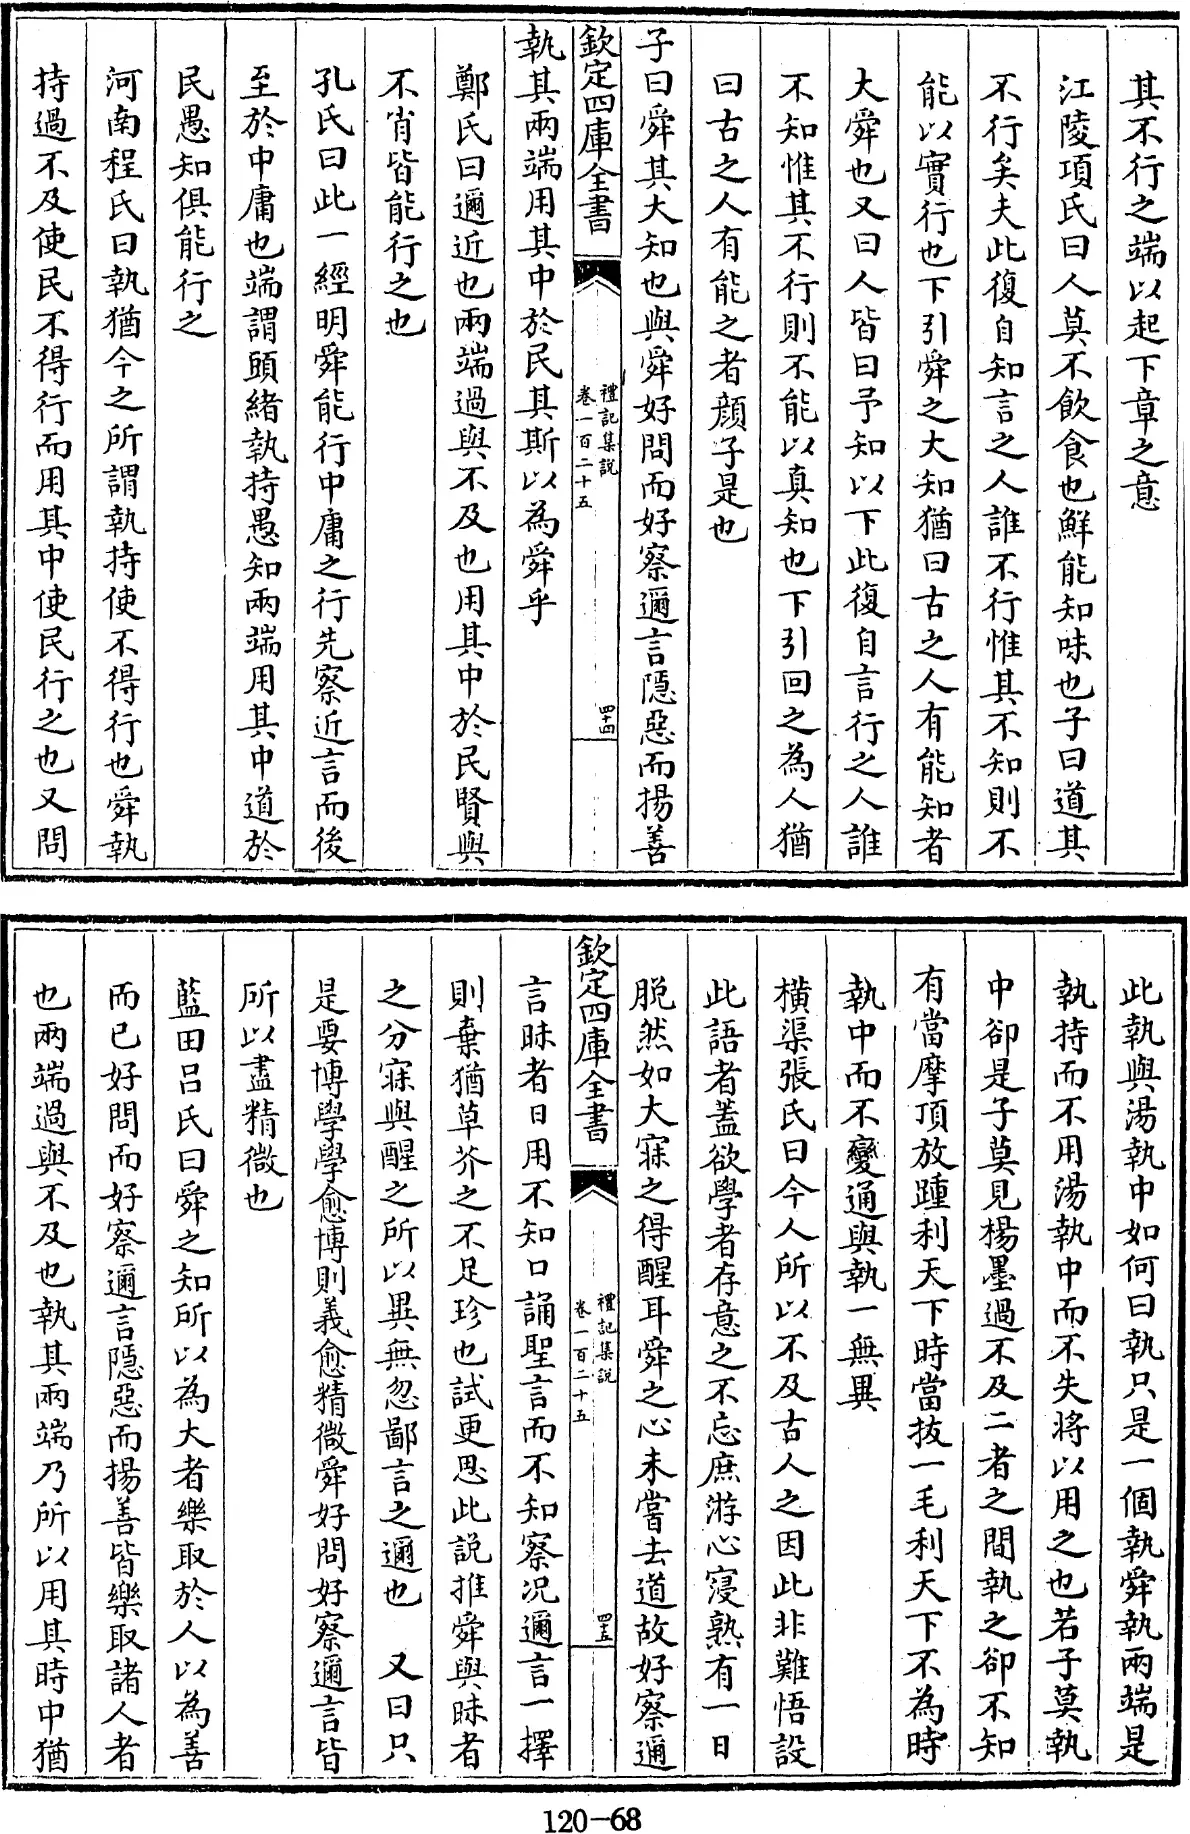 其不行之端以起下章之意
江陵項氏曰人莫不飲食也鮮能知味也子曰道其
不行矣夫此復自知言之人誰不行惟其不知則不
能以實行也下引舜之大知猶曰古之人有能知者
大舜也又曰人皆曰予知以下此復自言行之人誰
不知惟其不行則不能以真知也下引回之為人猶
曰古之人有能之者顔子是也
子曰舜其大知也與舜好問而好察邇言隱惡而揚善
欽定四庫全書
禮記集說
卷一百二十五
四十四
執其兩端用其中於民其斯以為舜乎
鄭氏曰邇近也兩端過與不及也用其中於民賢與
不肖皆能行之也
孔氏曰此一經明舜能行中庸之行先察近言而後
至於中庸也端謂頭緒執持愚知兩端用其中道於
民愚知俱能行之
河南程氏曰執猶今之所謂執持使不得行也舜執
持過不及使民不得行而用其中使民行之也又問
此執與湯執中如何曰執只是一個執舜執兩端是
執持而不用湯執中而不失將以用之也若子莫執
中卻是子莫見楊墨過不及二者之間執之卻不知
有當摩頂放踵利天下時當拔一毛利天下不為時
執中而不變通與執一無異
橫渠張氏曰今人所以不及古人之因此非難悟設
此語者蓋欲學者存意之不忘庶游心寖熟有一日
脫然如大寐之得醒耳舜之心未嘗去道故好察邇
欽定四庫全書
禮記集說
卷一百二十五
四十五
言昧者日用不知口誦聖言而不知察况邇言一擇
則棄猶草芥之不足珍也試更思此説推舜與昧者
之分寐與醒之所以異無忽鄙言之邇也 又曰只
是要博學學愈博則義愈精微舜好問好察邇言皆
所以盡精微也
藍田吕氏曰舜之知所以為大者樂取於人以為善
而已好問而好察邇言隱惡而揚善皆樂取諸人者
也兩端過與不及也執其兩端乃所以用其時中猶
120-68